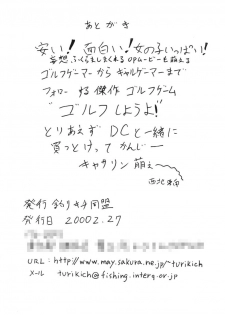 あとがき
安い! 面白い! 女の子いっぱい!
妄想ふくらましまくれるOPムービーも萌える
ゴルフゲーマーからギャルゲーマーまで
フォローする傑作ゴルフゲーム
"ゴルフしようよ"
とりあえずDCと一緒に
買っとけってかんじー
キャサリン萌え〜
発行 釣りキチ同盟
発行日 20002.27
URL: http://www.may.sakura.ne.jp/~turikich
メール turikich@fishing.interq.or.jp